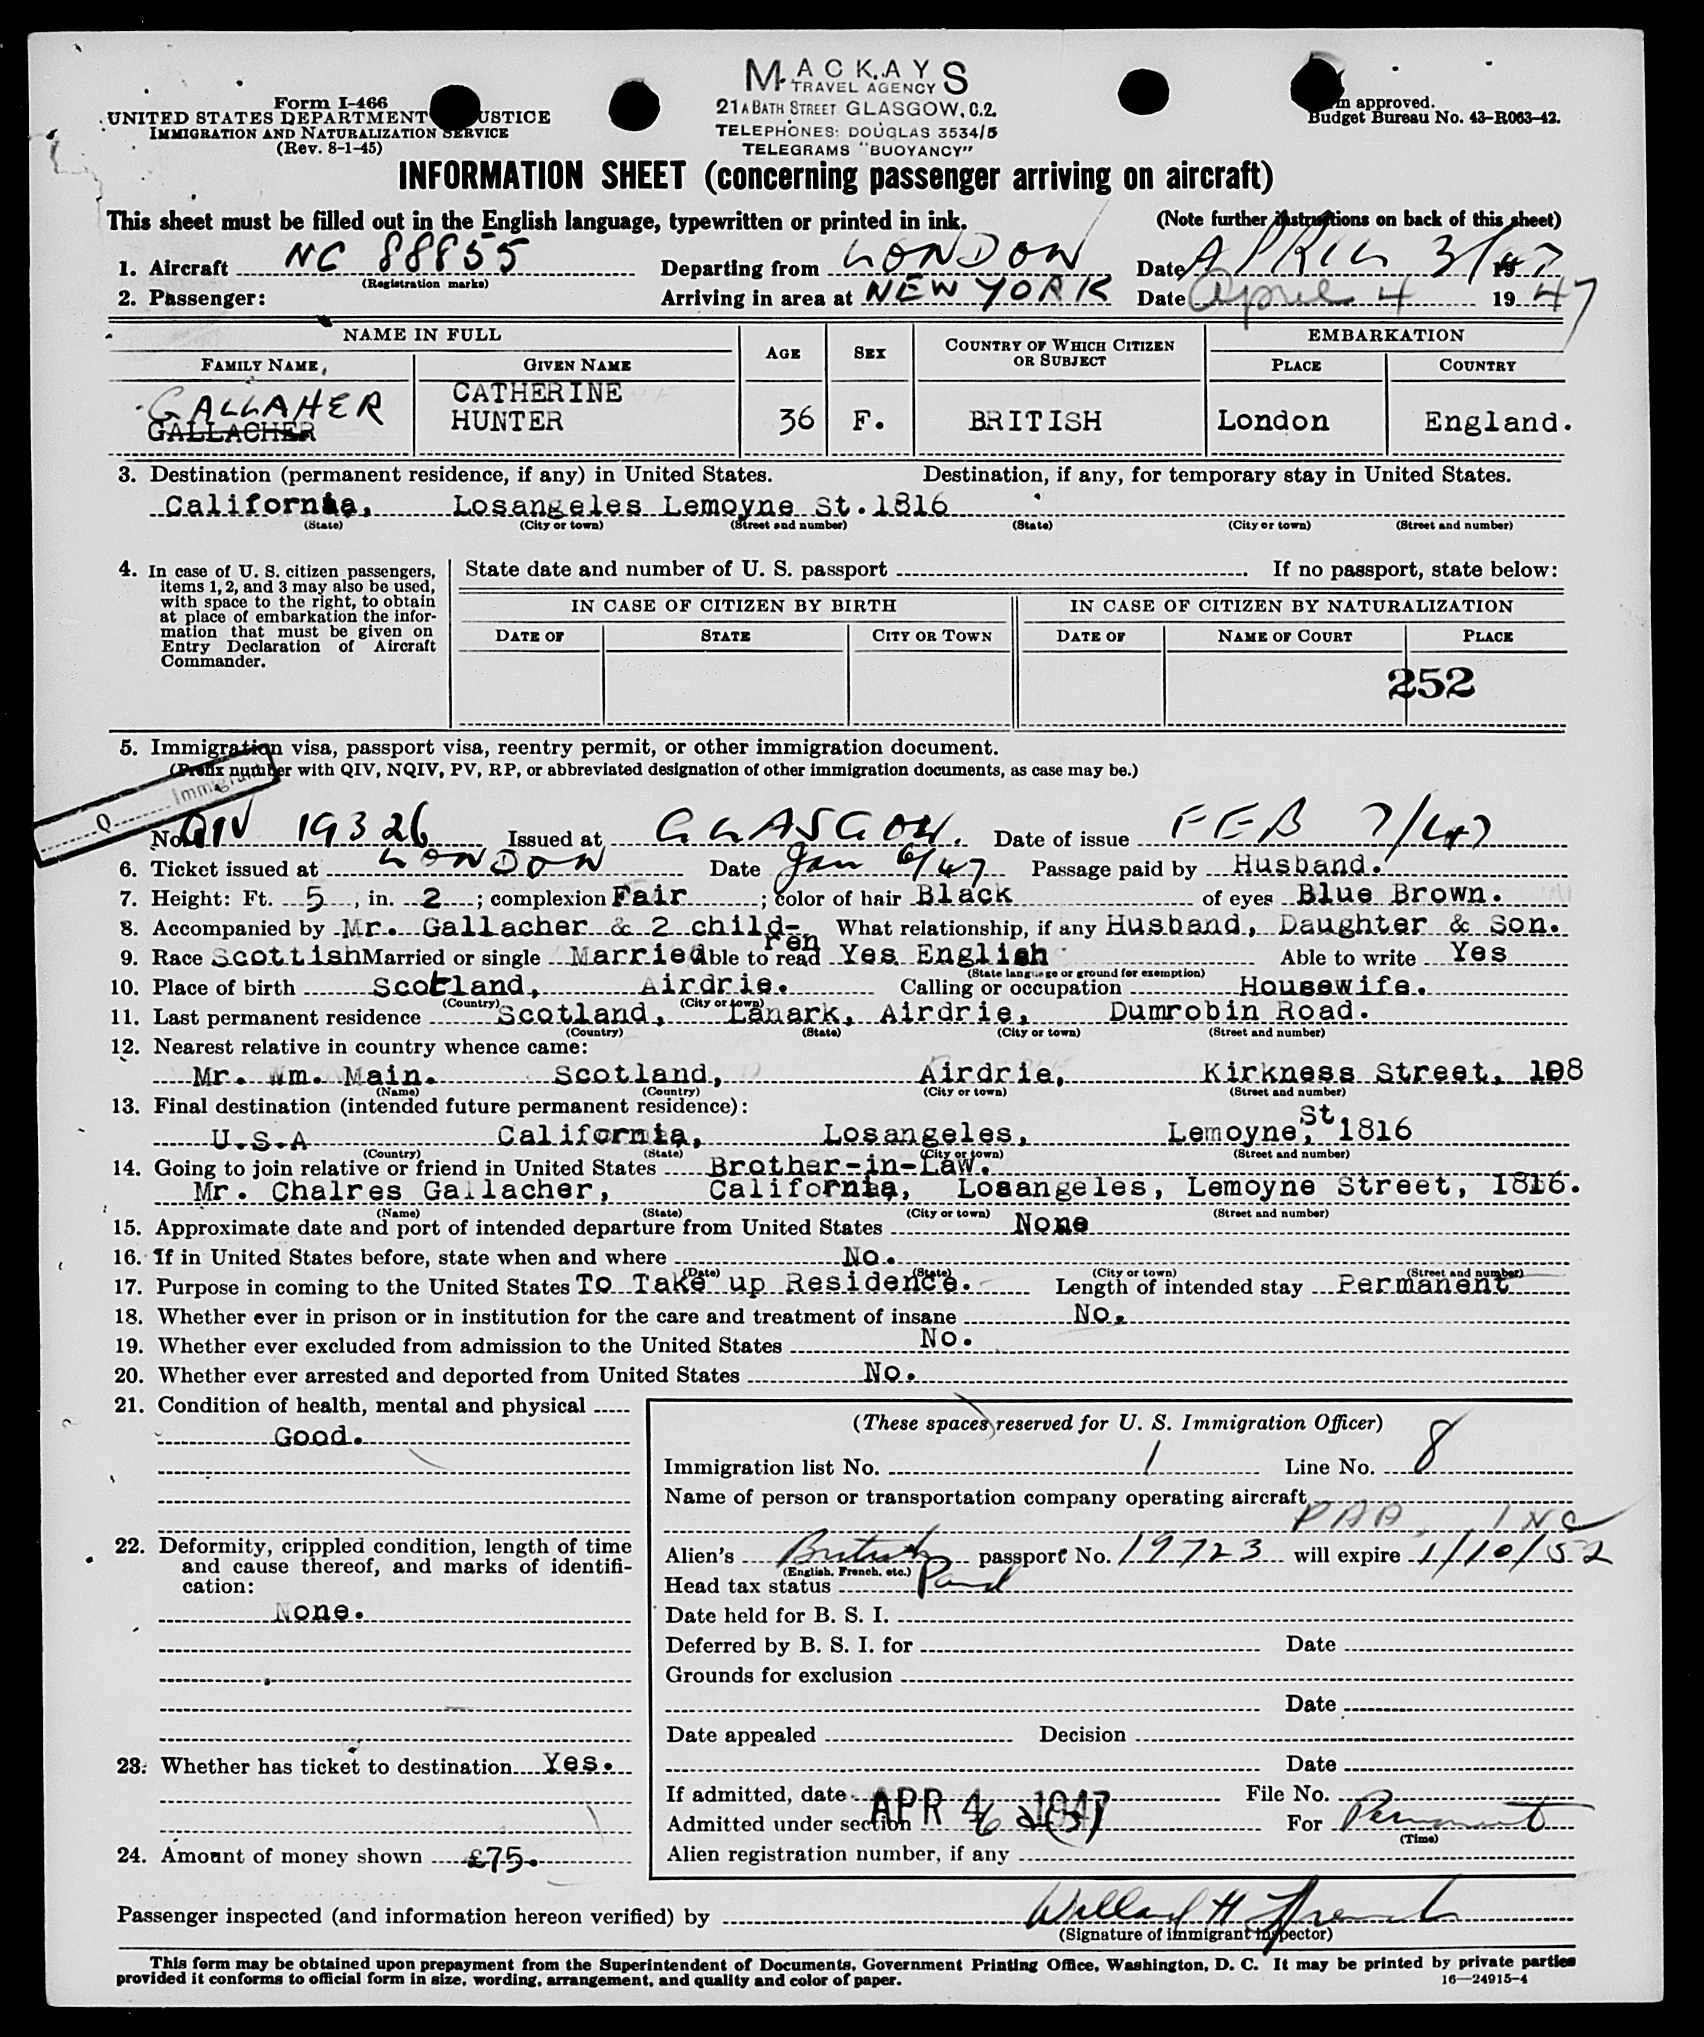 MACKAYS
TRAVEL AGENCY
21A BATH STREET GLASGOW, C.2.
TELEPHONES: DOUGLAS 3534/5
TELEGRAMS "BUOYANCY"
Form I-466
UNITED STATES DEPARTMENT USTICE
IMMIGRATION AND NATURALIZATION SERVICE
(Rev. 8-1-45)
m approved.
Budget Bureau No. 43-R063-42.
INFORMATION SHEET (concerning passenger arriving on aircraft)
This sheet must be filled out in the English language, typewritten or printed in ink. (Note further instructions on back of this sheet)
1. Aircraft NC 88855 Departing from LONDON Date APRIL 3/47
(Registration marks)
2. Passenger: Arriving in area at NEW YORK Date April 4 1947
NAME IN FULL AGE SEX COUNTRY OF WHICH CITIZEN OR SUBJECT EMBARKATION
FAMILY NAME GIVEN NAME PLACE COUNTRY
GALLAHER CATHERINE
GALLACHER HUNTER 36 F. BRITISH London England.
3. Destination (permanent residence, if any) in United States. Destination, if any, for temporary stay in United States.
California, Losangeles Lemoyne St. 1816
(State) (City or town) (Street and number) (State) (City or town) (Street and number)
4. In case of U. S. citizen passengers, items 1, 2, and 3 may also be used, with space to the right, to obtain at place of embarkation the information that must be given on Entry Declaration of Aircraft Commander.
State date and number of U. S. passport If no passport, state below:
IN CASE OF CITIZEN BY BIRTH IN CASE OF CITIZEN BY NATURALIZATION
DATE OF STATE CITY OR TOWN DATE OF NAME OF COURT PLACE
252
5. Immigration visa, passport visa, reentry permit, or other immigration document.
(Prefix number with QIV, NQIV, PV, RP, or abbreviated designation of other immigration documents, as case may be.)
Q Immigrant
No. QIV 19326 Issued at GLASGOW. Date of issue FEB 7/47
6. Ticket issued at LONDON Date Jan 6/47 Passage paid by Husband.
7. Height: Ft. 5, in. 2; complexion Fair; color of hair Black of eyes Blue Brown.
8. Accompanied by Mr. Gallacher & 2 child-ren What relationship, if any Husband, Daughter & Son.
9. Race Scottish Married or single Married Able to read Yes English Able to write Yes
(State language or ground for exemption)
10. Place of birth Scotland, Airdrie. Calling or occupation Housewife.
(Country) (City or town)
11. Last permanent residence Scotland, Lanark, Airdrie, Dumrobin Road.
(Country) (State) (City or town) (Street and number)
12. Nearest relative in country whence came:
Mr. Wm. Main. Scotland, Airdrie, Kirkness Street, 108
(Name) (Country) (City or town) (Street and number)
13. Final destination (intended future permanent residence):
U.S.A California, Losangeles, Lemoyne St, 1816
(Country) (State) (City or town) (Street and number)
14. Going to join relative or friend in United States Brother-in-Law.
Mr. Chalres Gallacher, California, Losangeles, Lemoyne Street, 1816.
(Name) (State) (City or town) (Street and number)
15. Approximate date and port of intended departure from United States None
16. If in United States before, state when and where No.
(Date) (State) (City or town) (Street and number)
17. Purpose in coming to the United States To Take up Residence. Length of intended stay Permanent
18. Whether ever in prison or in institution for the care and treatment of insane No.
19. Whether ever excluded from admission to the United States No.
20. Whether ever arrested and deported from United States No.
21. Condition of health, mental and physical
Good.
22. Deformity, crippled condition, length of time and cause thereof, and marks of identification:
None.
23. Whether has ticket to destination Yes.
24. Amount of money shown £75.
(These spaces reserved for U. S. Immigration Officer)
Immigration list No. 1 Line No. 8
Name of person or transportation company operating aircraft
PAA, INC
Alien's British passport No. 19723 will expire 1/10/52
(English, French, etc.)
Head tax status Paid
Date held for B. S. I.
Deferred by B. S. I. for Date
Grounds for exclusion
Date
Date appealed Decision
Date
If admitted, date APR 4 1947 File No.
Admitted under section 6 a (3) For Permanent
(Time)
Alien registration number, if any
Passenger inspected (and information hereon verified) by Willard H French
(Signature of immigrant inspector)
This form may be obtained upon prepayment from the Superintendent of Documents, Government Printing Office, Washington, D. C. It may be printed by private parties
provided it conforms to official form in size, wording, arrangement, and quality and color of paper. 16—24915-4